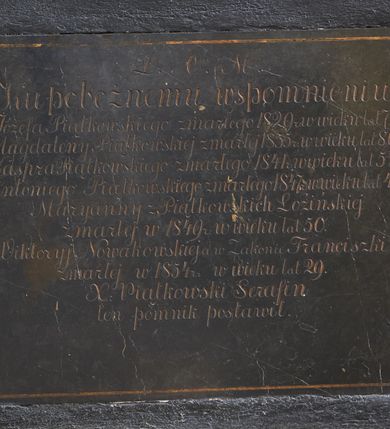 D. O. M.
Ku pobożnemu wspomnieniu
Józefa Piątkowskiego zmarłego 1820 r. w wieku lat
Magdaleny Piątkowskiej zmarłej w wieku lat
Kaspra Piątkowskiego zmarłego 1841. w wieku lat 5
Antoniego Piątkowskiego zmarłego 1847. w wieku lat 4
Maryanny z Piątkowskich Łozińskiej
zmarłej w 1849. w wieku lat 50.
Wiktoryi Nowakowskiej a w Zakonie Franciszki
zmarłej w 1854 r. w wieku lat 29.
X. Piątkowski Serafin
ten pomnik postawił.